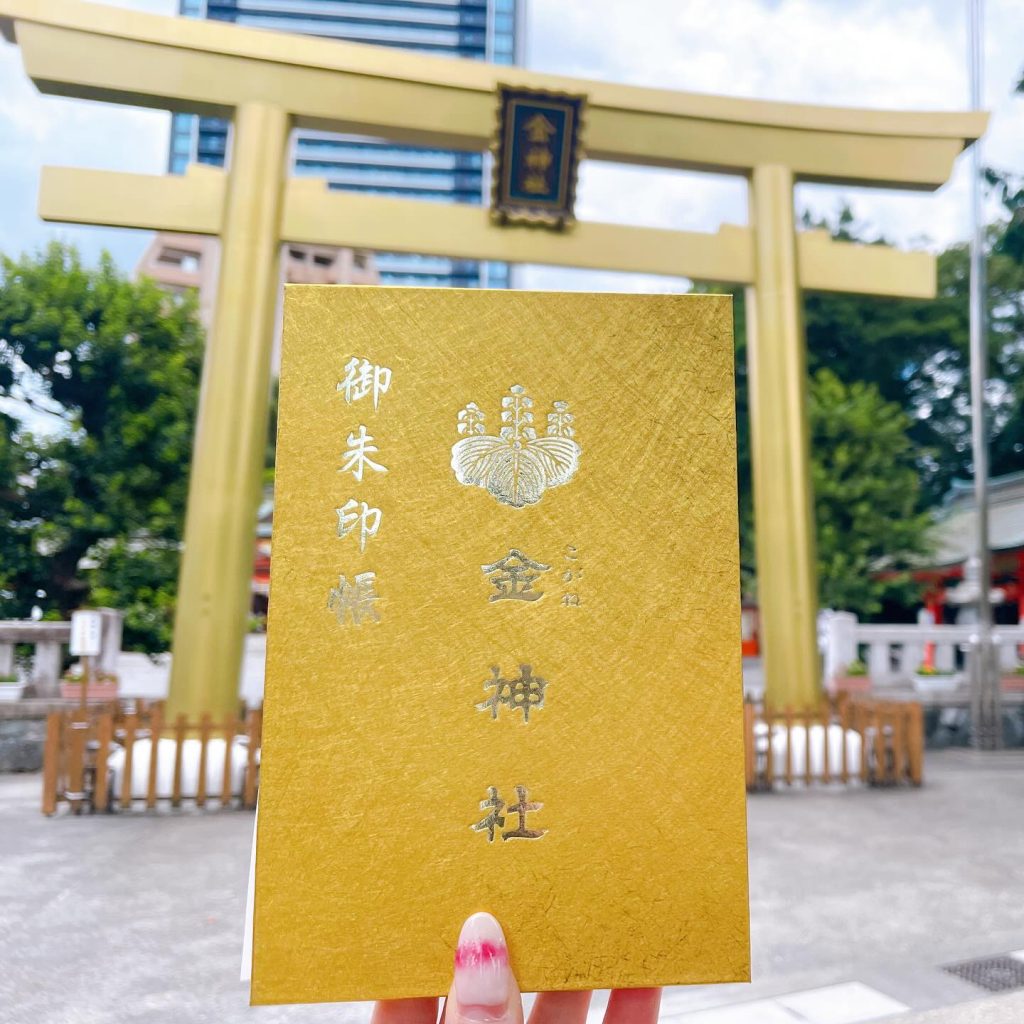 金神社
金神社
こがね
御朱印帳